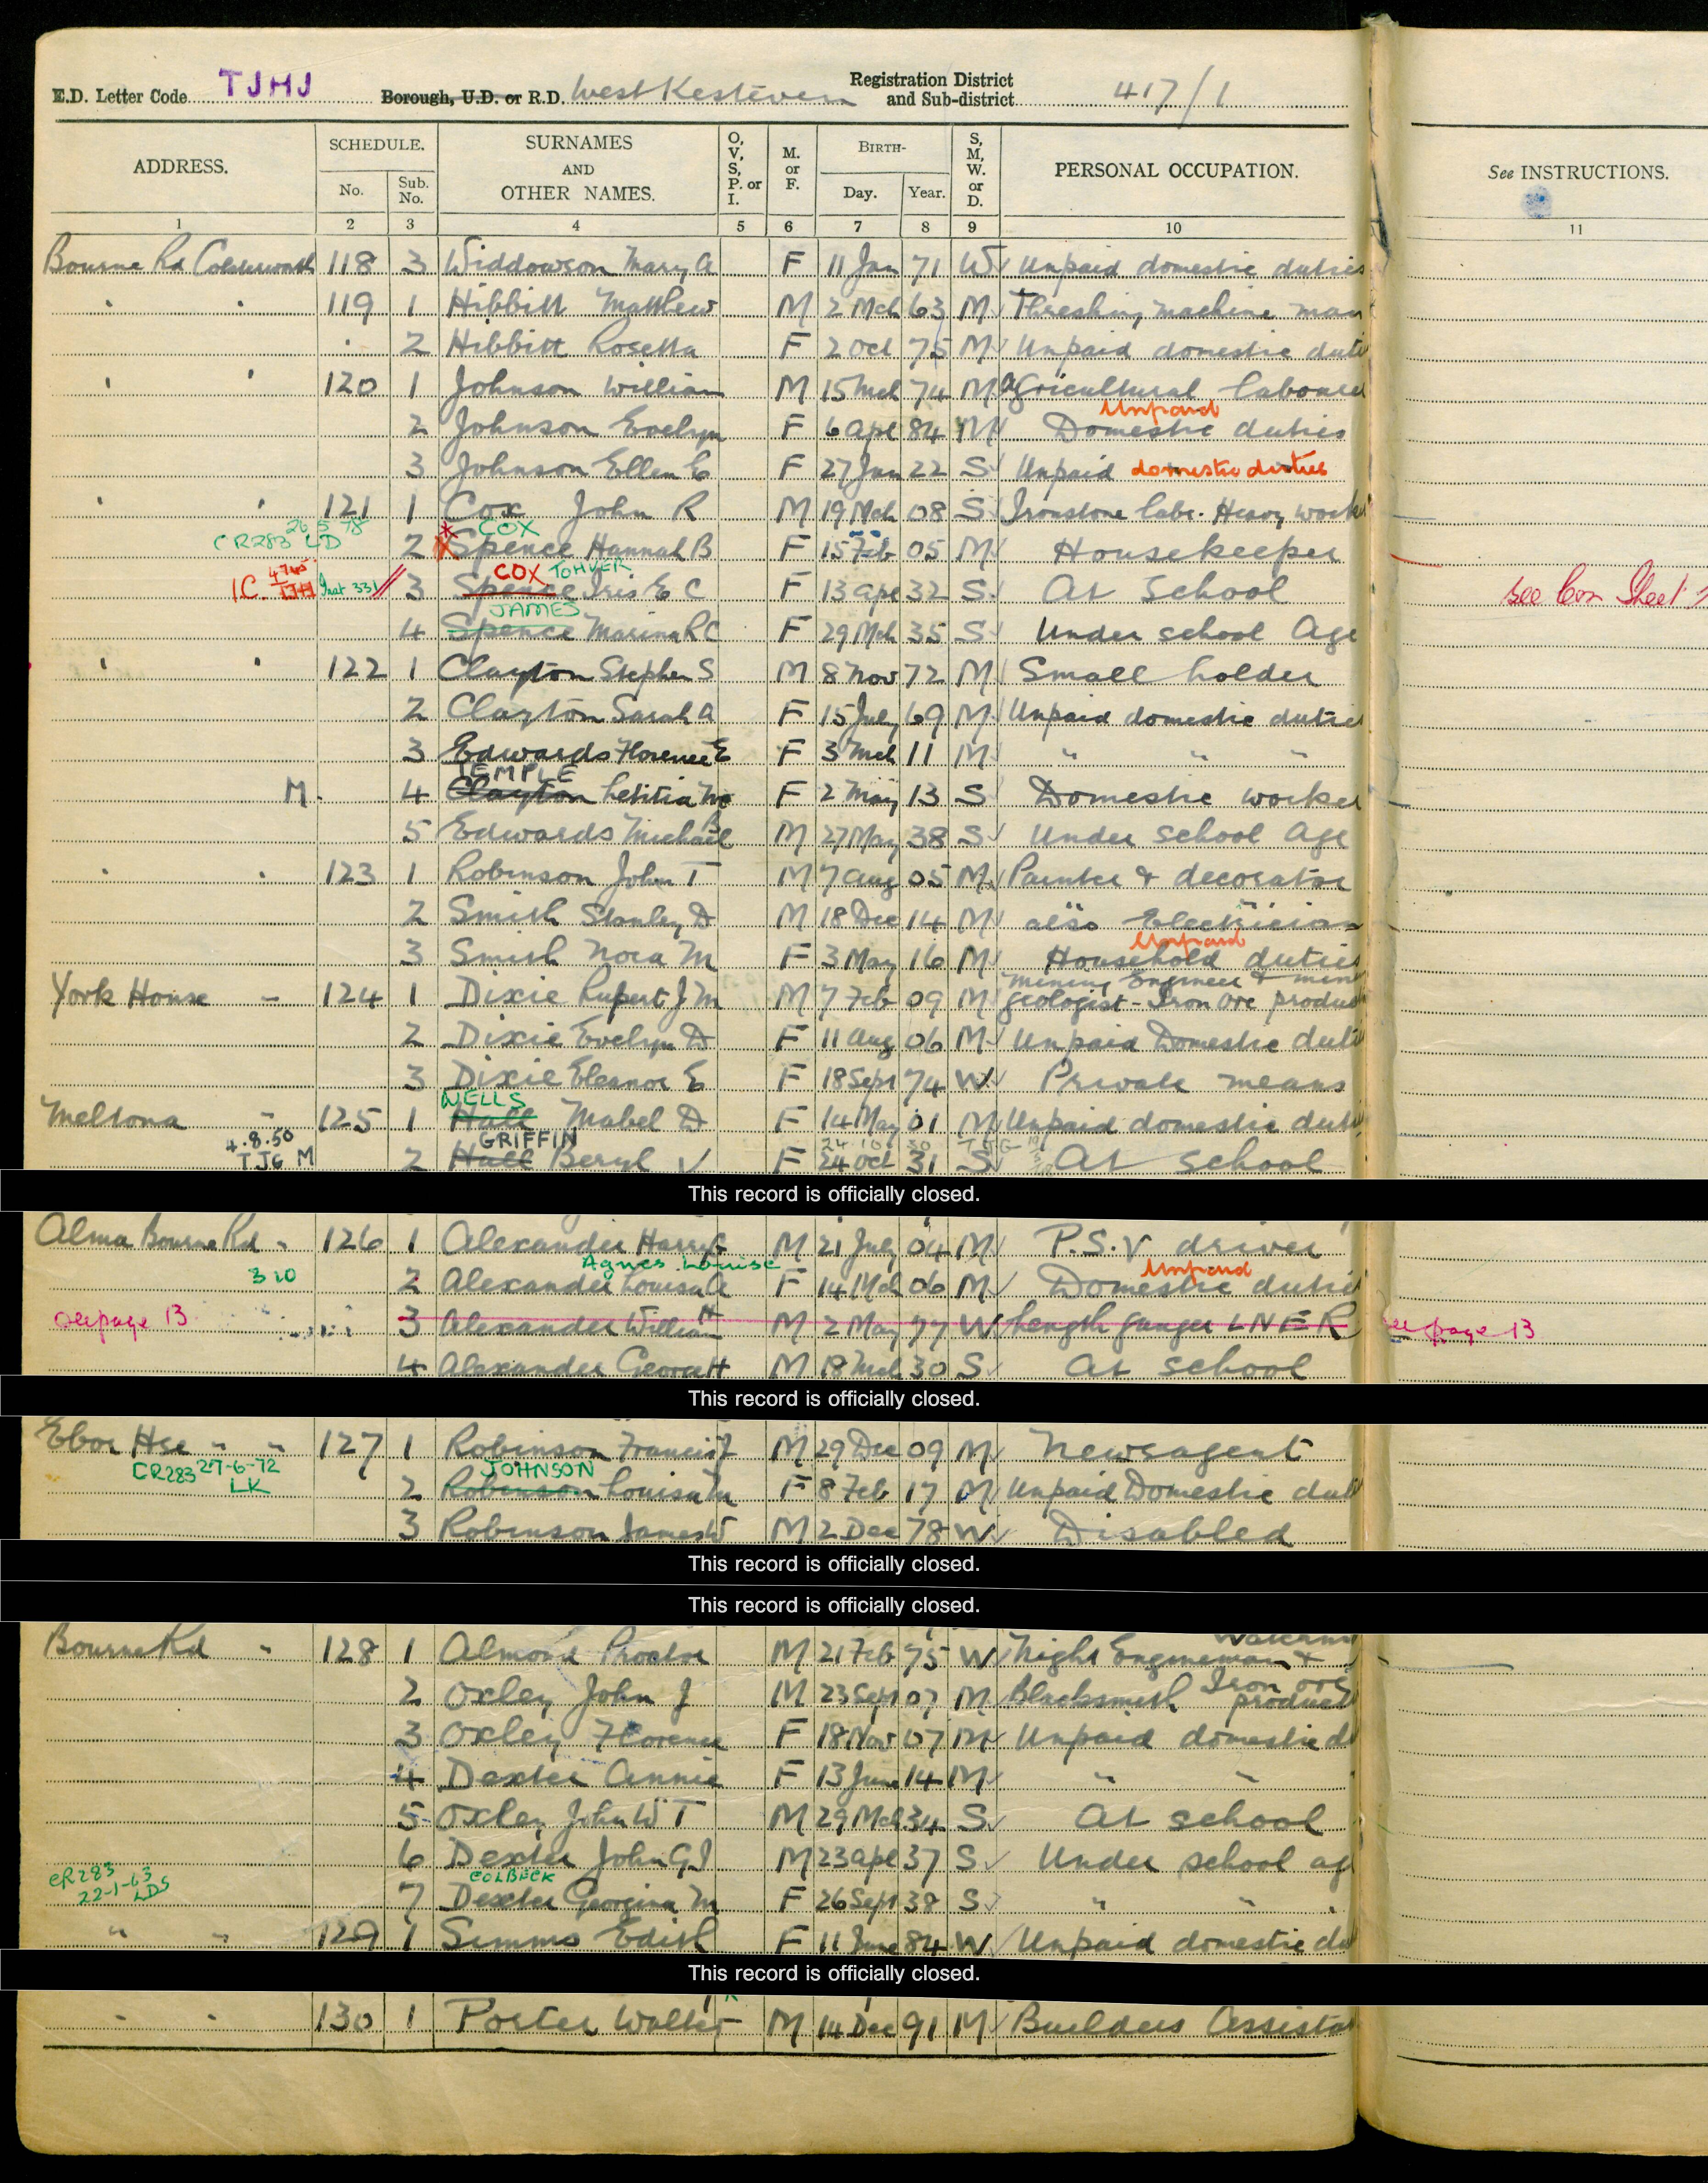 E.D. Letter Code TJHJ Borough, U.D. or R.D. West Kesteven Registration District and Sub-district 417/1
ADDRESS. SCHEDULE. No. Sub. No. SURNAMES AND OTHER NAMES. O, V, S, P. or I. M. or F. BIRTH- Day. Year. S, M, W. or D. PERSONAL OCCUPATION. See INSTRUCTIONS.
1 2 3 4 5 6 7 8 9 10 11
Bourne Rd Colsterworth 118 3 Widdowson Mary A F 11 Jan 71 W Unpaid domestic duties
" " 119 1 Hibbitt Matthew M 2 Mch 63 M Threshing machine man
" 2 Hibbitt Rosetta F 2 Oct 75 M Unpaid domestic duti
" " 120 1 Johnson William M 15 Mch 74 M Agricultural labourer
Unpaid
2 Johnson Evelyn F 6 Apl 84 M Domestic duties
3 Johnson Ellen E F 27 Jan 22 S Unpaid domestic duties
" " 121 1 Cox John R M 19 Mch 08 S Ironstone labr. Heavy worke
CR283 26 5 78 LD COX
2 Spence Hannah B F 15 Feb 05 M Housekeeper
COX TOHVER
3 Spence Iris E C F 13 Apl 32 S At School see Con Sheet
JAMES
4 Spence Marina R C F 29 Mch 35 S Under school Age
" " 122 1 Clayton Stephen S M 8 Nov 72 M Small holder
2 Clayton Sarah A F 15 July 69 M Unpaid domestic duties
3 Edwards Florence E F 3 Mch 11 M " " "
TEMPLE
M. 4 Clayton Letitia F 2 May 13 S Domestic worker
5 Edwards Michael B M 27 May 38 S Under school Age
" " 123 1 Robinson John T M 7 Aug 05 M Painter & decorator
2 Smith Stanley D M 18 Dec 14 M also Electrician
Unpaid
3 Smith Nora M F 3 May 16 M Household duties
Mining Engineer & mine
York House - 124 1 Dixie Rupert J M M 7 Feb 09 M geologist - Iron ore produc
2 Dixie Evelyn D F 11 Aug 06 M Unpaid Domestic duti
3 Dixie Eleanor E F 18 Sept 74 W Private means
WELLS
Meltona " 125 1 Hall Mabel D F 14 May 01 M Unpaid domestic duti
4.8.50 GRIFFIN 24 10 30 TJG
TJG M 2 Hall Beryl V F 24 Oct 31 S At school
This record is officially closed.
Alma Bourne Rd " 126 1 Alexander Harry G M 21 July 04 M P.S.V driver
Agnes Louise Unpaid
310 2 Alexander Louisa A F 14 Mch 06 M Domestic dutie
see page 13 3 Alexander William H M 2 May 77 W Length ganger LNER see page 13
4 Alexander George H M 18 Mch 30 S At school
This record is officially closed.
Ebor Hse " " 127 1 Robinson Francis J M 29 Dec 09 M Newsagent
CR283 27-6-72 JOHNSON
LK 2 Robinson Louisa M F 8 Feb 17 M Unpaid Domestic duti
3 Robinson James W M 2 Dec 78 W Disabled
This record is officially closed.
This record is officially closed.
Bourne Rd " 128 1 Almond Proctor M 21 Feb 75 W Night Engineman &
2 Oxley John J M 23 Sept 07 M Blacksmith Iron ore product
3 Oxley Florence F 18 Nov 07 M Unpaid domestic d
4 Dexter Annie F 13 June 14 M " "
5 Oxley John W T M 29 Mch 34 S At school
6 Dexter John G J M 23 Apl 37 S Under school ag
CR283 COLBECK
22-1-63 LDS 7 Dexter Georgina M F 26 Sept 38 S " " "
" " 129 1 Simms Edith F 11 June 84 W Unpaid domestic du
This record is officially closed.
" " 130 1 Porter Walter M 14 Dec 91 M Builders Assista